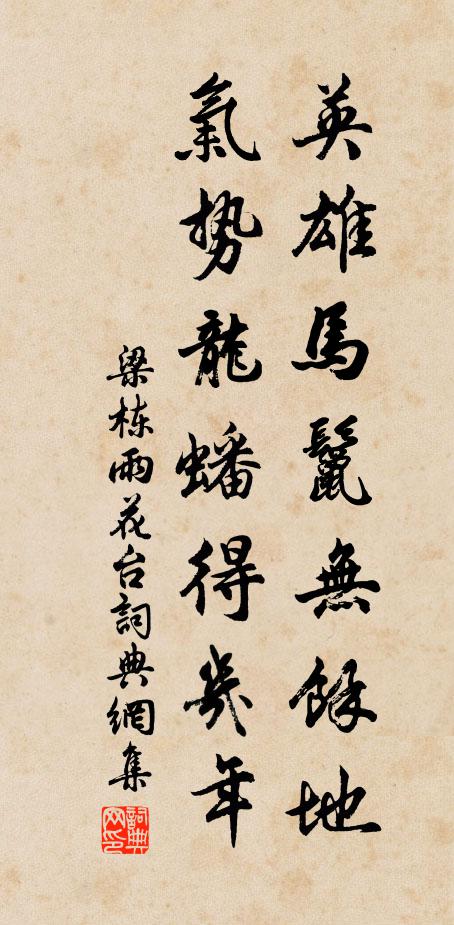 英雄馬鬣無餘地
氣势龍蟠得幾年
梁栋雨花台詞典網集
詞典网印